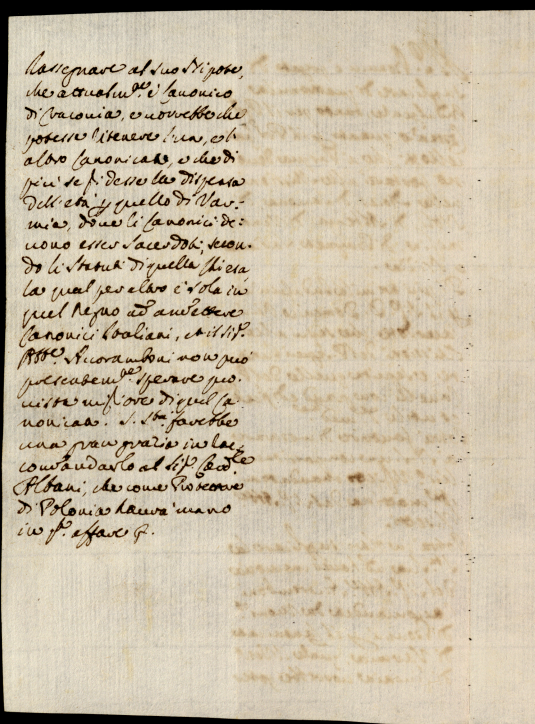 Rassegnare al suo Nipote,
che attualm.te è Canonico
di Vracovia, e vorrebbe che
potesse ritenere l'un, e l'
altro Canonicato, e che di
più se gli desse la dispensa
dell'età p quello di Var-
mia, dove li Canonici de-
vono esser Sacerdoti, secon-
do li Statuti di quella Chiesa,
la qual per altro è sola in
quel Regno ad ammettere
Canonici Italiani, et il Sig.r
Accoramboni non può
presentem.te sperare pro-
vista migliore di quel Ca-
nonicato. S. S.tà farebbe
una gran grazia in rac-
comandarlo al Sig.r Card.le
Albani, che come Protettore
di Polonia haverà mano
in q.to affare